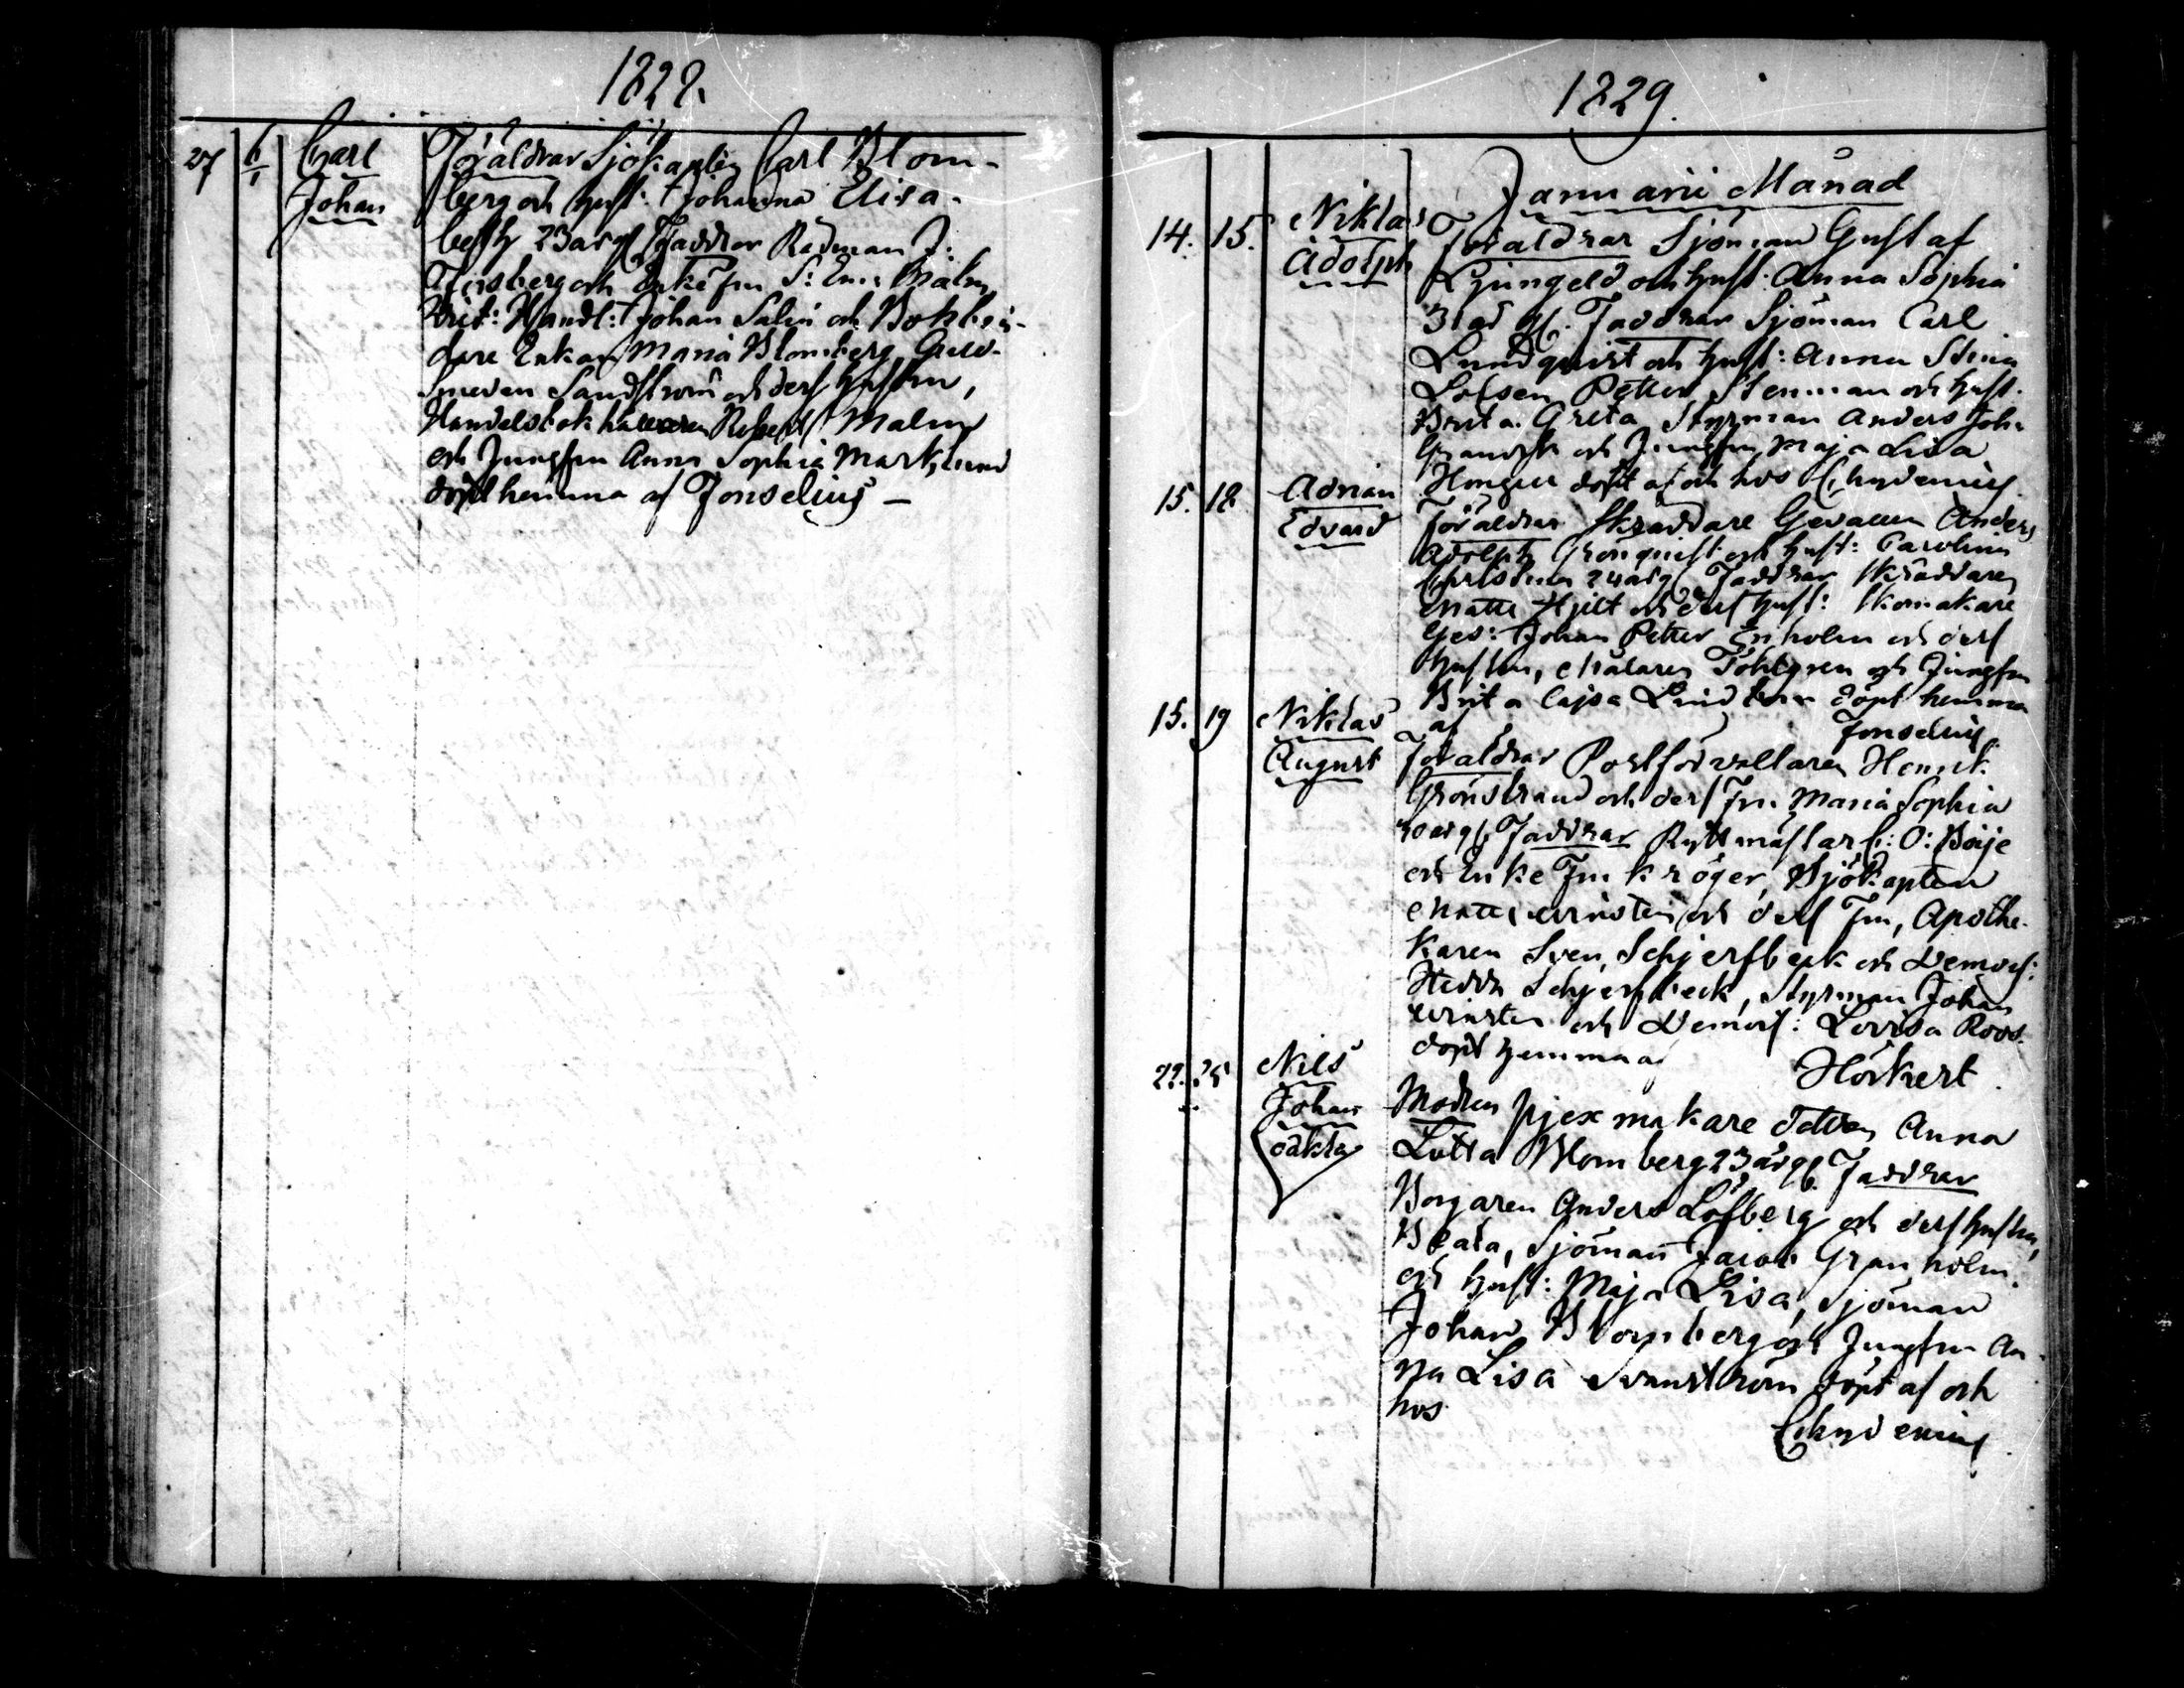 1828.
27 6/1 Carl Föräldrar Sjökapten Carl Blom-
Johan berg och Hust: Johanna Elisa-
beth 23 årg Faddrar Rådman J:
och Enkefru Malm
Handl: Johan Salin och Bokbin-
dare Enkan Maria Blomberg, Guld-
smeden Sandström och dess hustru,
Handelsbokhållaren Robert Malm
och Jungfru Anna Sophia Marklund
döpt hemma af Fonselius —
1829.
Januarii Månad
14. 15. Niklas Föräldrar Sjöman Gustaf
Adolph Ljungeld och Hust: Anna Sophia
31 åd gl. Faddrar Sjöman Carl
Lundqvist och Hust: Anna Stina
Lotsen Petter Stenman och Hust.
Brita Greta, Styrman Anders Joh:
och Jungfru Maja Lisa
döpt af och hos Chydenius.
15. 18 Adrian Föräldrar Skräddare Gesällen Anders
Edvard Adolph Grönqvist och Hust: Carolina
Christina 24 årg Faddrar Skräddaren
Matts Hjelt och dess Hust: Skomakare
Ges: Johan Petter Enholm och dess
Hustru, Målaren och Jungfru
Brita Cajsa döpt hemma
15. 19 Niklas af Fonselius.
August Föräldrar Postförvaltaren Henrik
Grönstrand och dess Fru Maria Sophia
30 årg. Faddrar Ryttmästar C: O: Boije
och Enke Fru Kröger, Sjökapten
Matts och dess Fru, Apothe-
karen Sven Schjerfbeck och Demois:
Hedda Schjerfbeck, Styrman Johan
och Demois: Lovisa Roos.
döpt hemma af Hörkert.
22. 25 Nils
Johan Modren pjexmakare dottren Anna
oäkta Lotta Blomberg 23 årg. Faddrar
Borgaren Anders Löfberg och dess hustru,
Beata, Sjöman Jacob Granholm
och Hust: Maja Lisa, Sjöman
Johan Blomberg och Jungfru An-
na Lisa döpt af och
hos Chydenius.